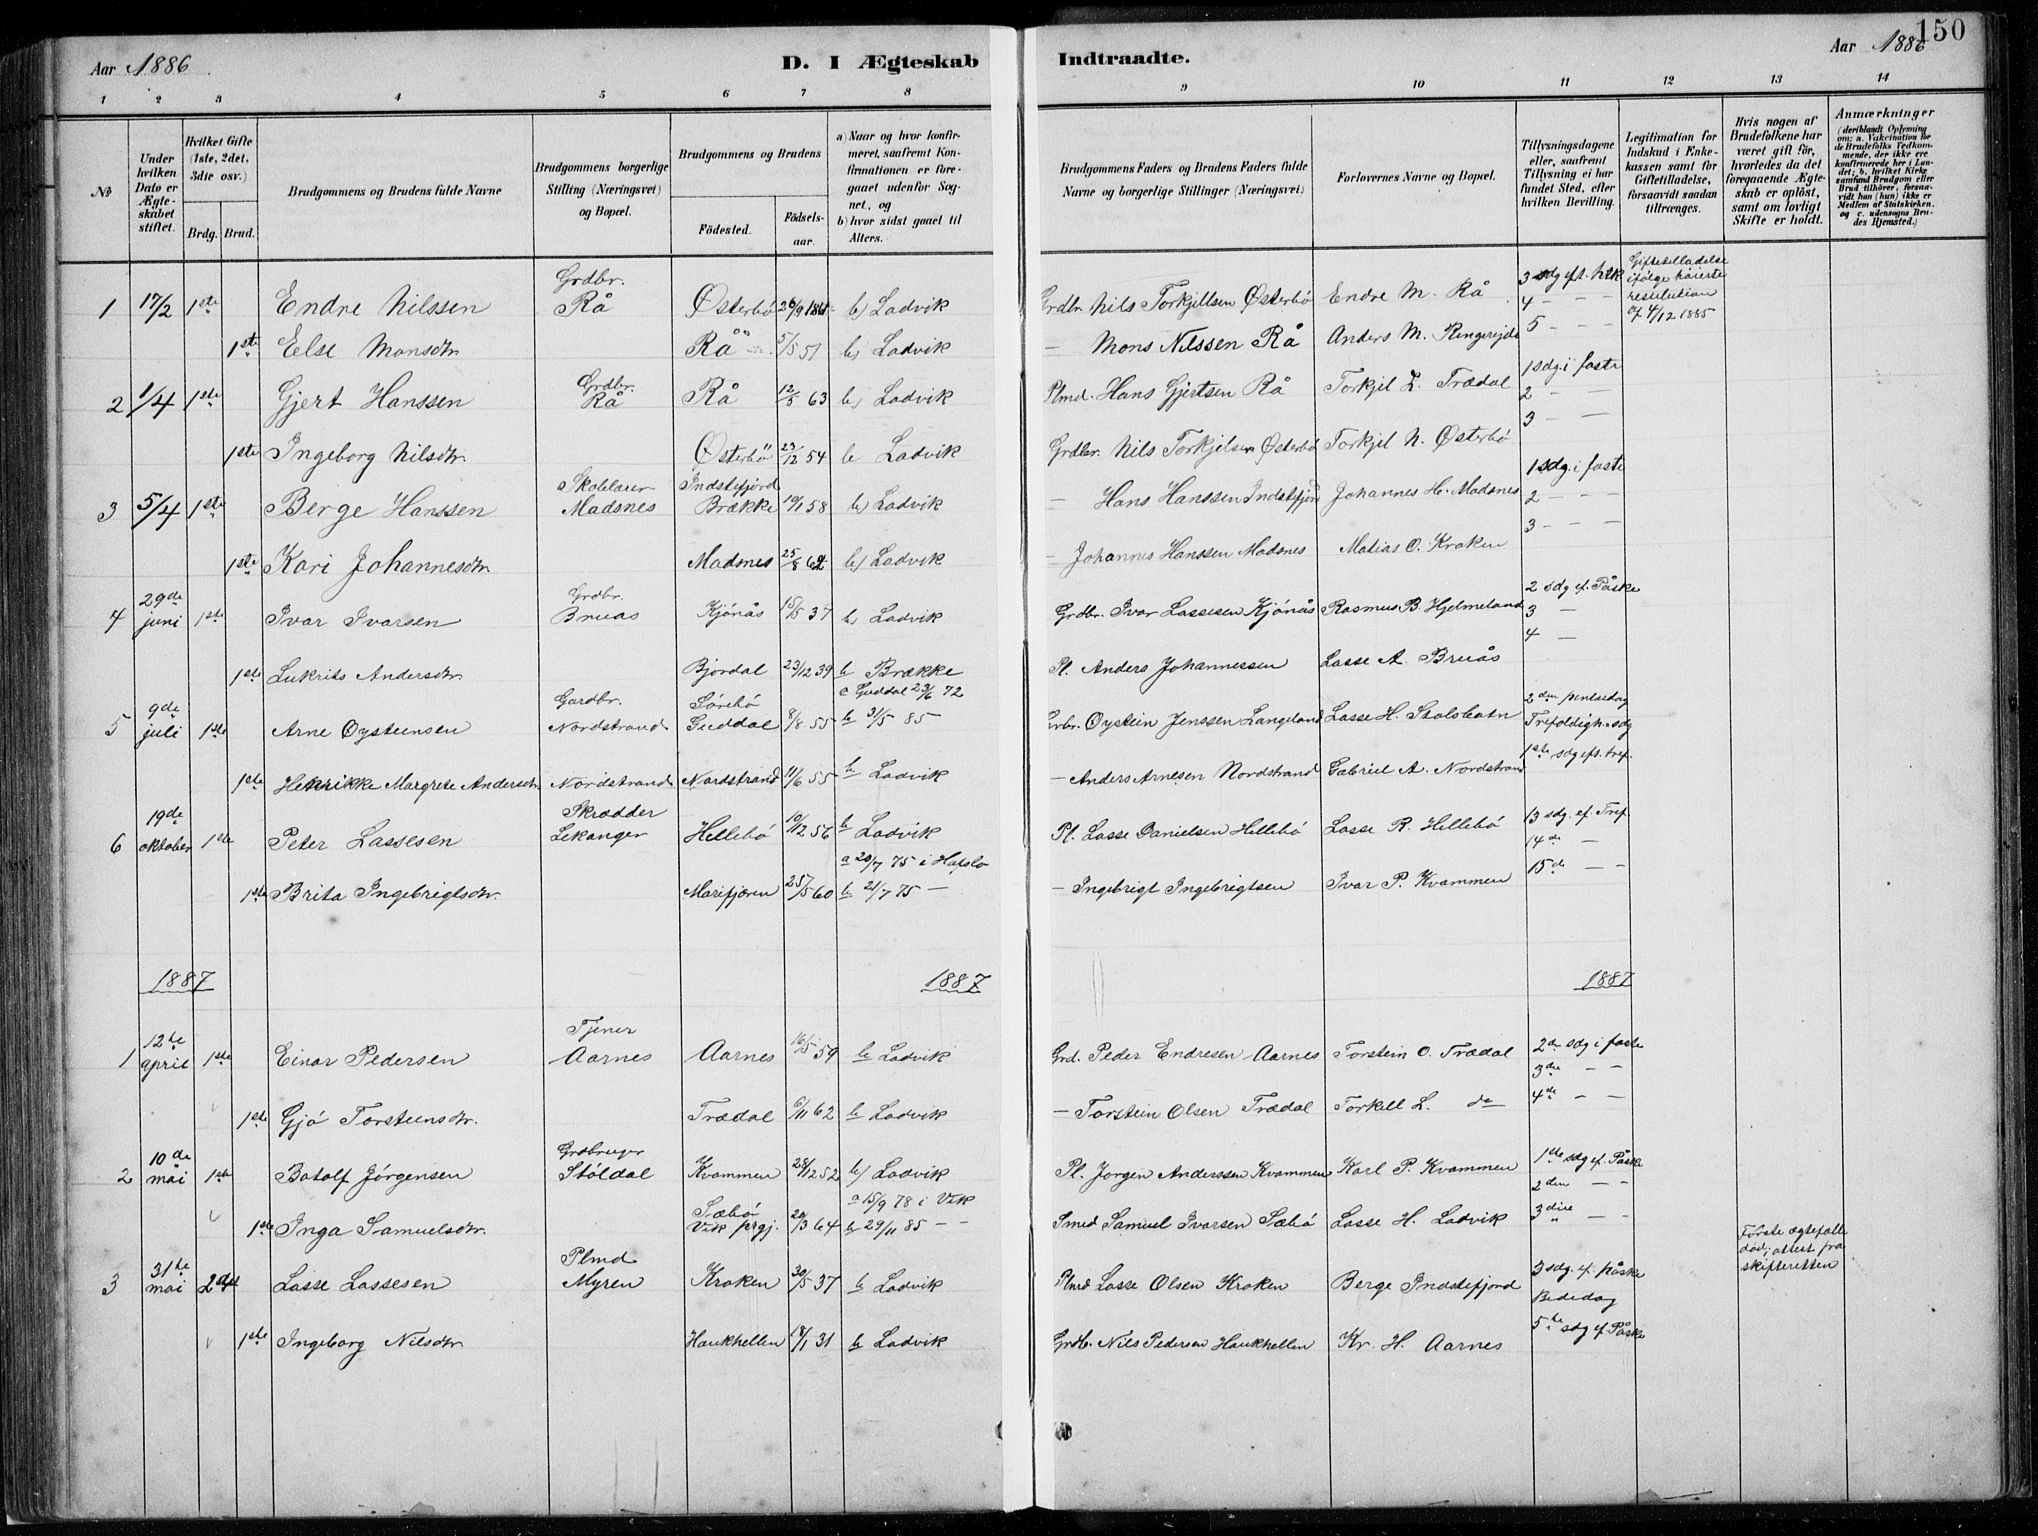 150
Aar 1886.
D. I Ægteskab Indtraadte.
Aar 1886
1 2 3 4 5 6 7 8 9 10 11 12 13 14
No
Under hvilken Dato er Ægteskabet stiftet.
Hvilket Gifte (1ste, 2det, 3die osv.)
Brdg. Brud.
Brudgommens og Brudens fulde Navne
Brudgommens borgerlige Stilling (Næringsvei) og Bopæl.
Brudgommens og Brudens
Födested.
Födselsaar.
a) Naar og hvor konfirmeret, saafremt Konfirmationen er foregaaet udenfor Sognet, og
b) hvor sidst gaaet til Alters.
Brudgommens Faders og Brudens Faders fulde Navne og borgerlige Stillinger (Næringsvei)
Forlovernes Navne og Bopæl.
Tillysningsdagene eller, saafremt Tillysning ei har fundet Sted, efter hvilken Bevilling.
Legitimation for Indskud i Enkekassen samt for Giftetilladelse, forsaavidt saadan tiltrænges.
Hvis nogen af Brudefolkene har været gift för, hvorledes da det foregaaende Ægteskab er oplöst, samt om lovligt Skifte er holdt.
Anmærkninger
(deriblandt Oplysning om: a. Vakcination for de Brudefolks Vedkommende, der ikke ere konfirmerede her i Landet; b. hvilket Kirkesamfund Brudgom eller Brud tilhörer, forsaavidt han (hun) ikke er Medlem af Statskirken, og c. udensogns Brudes Hjemsted.)
1 17/2 1ste Endre Nilssen Grdbr. Rå Østerbö 26/9 1861 b) Ladvik Grdbr. Nils Torkjellsen Østerbö Endre M. Rå 3 sdg eft. h3k
4 – – –
Giftetilladelse ifølge høieste resolution af 4/12 1885
1ste Else Monsdtr. Rå 5/5 51 b) Ladvik – Mons Nilssen Rå Anders M. Ringereide 5 – – –
2 1/4 1ste Gjert Hanssen Grdbr. Rå Rå 12/5 63 b) Ladvik Plmd. Hans Gjertsen Rå Torkjel L. Trædal 1 sdg. i faste
2 – –
3 – –
1ste Ingeborg Nilsdtr. Østerbö 23/12 54 b Ladvik Grdbr. Nils Torkjelsen Østerbö Torkjel N. Østerbö
3 5/4 1ste Berge Hanssen Skolelærer Madsnes Indstefjord Brække 10/1 58 b) Ladvik – Hans Hanssen Indstefjord Johannes H. Madsnes 1 sdg. i faste
2 – – –
3 – – –
1ste Kari Johannesdtr. Madsnes 25/8 62 b) Ladvik – Johannes Hanssen Madsnes Matias O. Kroken
4 29de juni 1ste Ivar Ivarsen Grdbr. Bruas Kjönås 15/5 37 b) Ladvik Grdbr. Ivar Lassesen Kjönås Rasmus B. Hjelmeland 2 sdg ef. Påske
3 –
4 –
1ste Lukrits Andersdtr. Bjordal 23/12 39 b Brække Pl. Anders Johannessen Lasse A. Bruås
5 9de juli 1ste Arne Oysteinsen Gardbr. Nordstrand Sörebö Guddal 8/8 55 a Guddal 23/6 72
b 31/5 85 – Oystein Jenssen Langeland Lasse H. Stolsbotn 2den pinsedag
Trefoldigh. sdg
1ste Henrikke Margrete Andersdtr. Nordstrand Nordstrand 11/6 55 b Ladvik – Anders Arnesen Nordstrand Gabriel A. Nordstrand 1ste sdg eft. tref.
6 19de oktober 1ste Peter Lassesen Skrædder Lekanger Hillebö 10/12 56 b Ladvik Pl. Lasse Danielsen Hillebö Lasse R. Hillebö 13 sdg. ef. Tref
14de –
15de – –
1ste Brita Ingebrigtsdtr. Marifjæren 25/5 60 a 20/7 75 i Hafslo
b 21/7 75 – – Ingebrigt Ingebrigtsen Ivar P. Kvammen
1887 1887 1887
1 12te april 1ste Einar Pedersen Tjener Aarnes Aarnes 16/5 59 b Ladvik Grd. Peder Endresen Aarnes Torstein O. Trædal 2de sdg i faste
3die – –
4de – –
1ste Gjö Torsteinsdtr. Trædal 6/11 62 b Ladvik – Torstein Olsen Trædal Torkell L. do
2 10de mai 1ste Botolf Jørgensen Grdbruger Stöldal Kvammen 28/12 52 b) Ladvik Pl. Jorgen Anderssen Kvammen Karl P. Kvammen 1ste sdg ef. Påske
2den – –
3die – –
1ste Inga Samuelsdtr. Sæbö Vik prgj. 20/3 64 a 15/9 78 i Vik
b 29/11 85 – – Smed Samuel Ivarsen Sæbö Lasse H. Ladvik
3 31te mai 2det Lasse Lassesen Plmd Myren Kroken 30/5 37 b Ladvik Plmd Lasse Olsen Kroken Berge Indstefjord 3 sdg. ef. påske
Bededag
Første ægtefælle død; attest fra skifteretten
1ste Ingeborg Nilsdtr. Haukhellen 18/1 31 b Ladvik Grdb. Nils Pedersen Haukhellen Kr. H. Aarnes 5te sdg ef. Påske